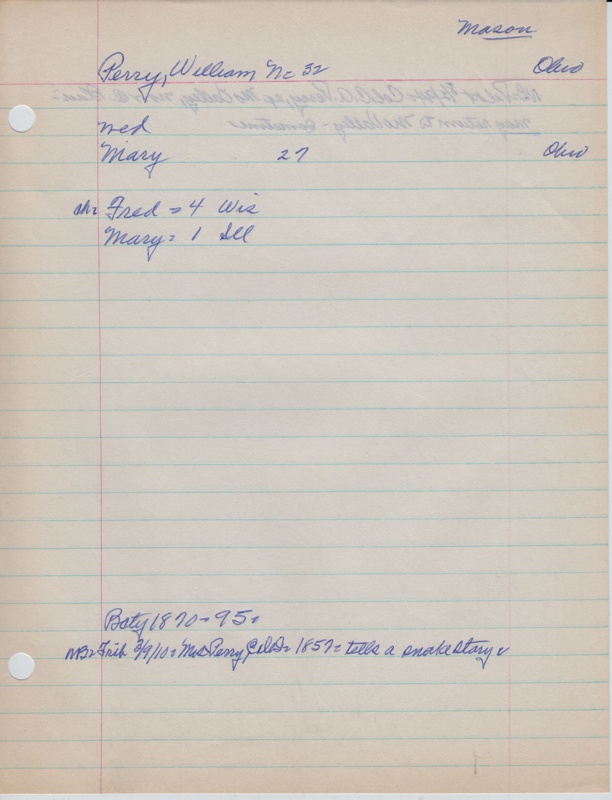 Mason
Perry, William N= 32 Ohio
wed
Mary 27 Ohio
ch= Fred = 4 Wis
Mary = 1 Ill
1870 = 95 =
NB= Trib 3/9/10 = Mrs Perry 1857 = tells a snake story